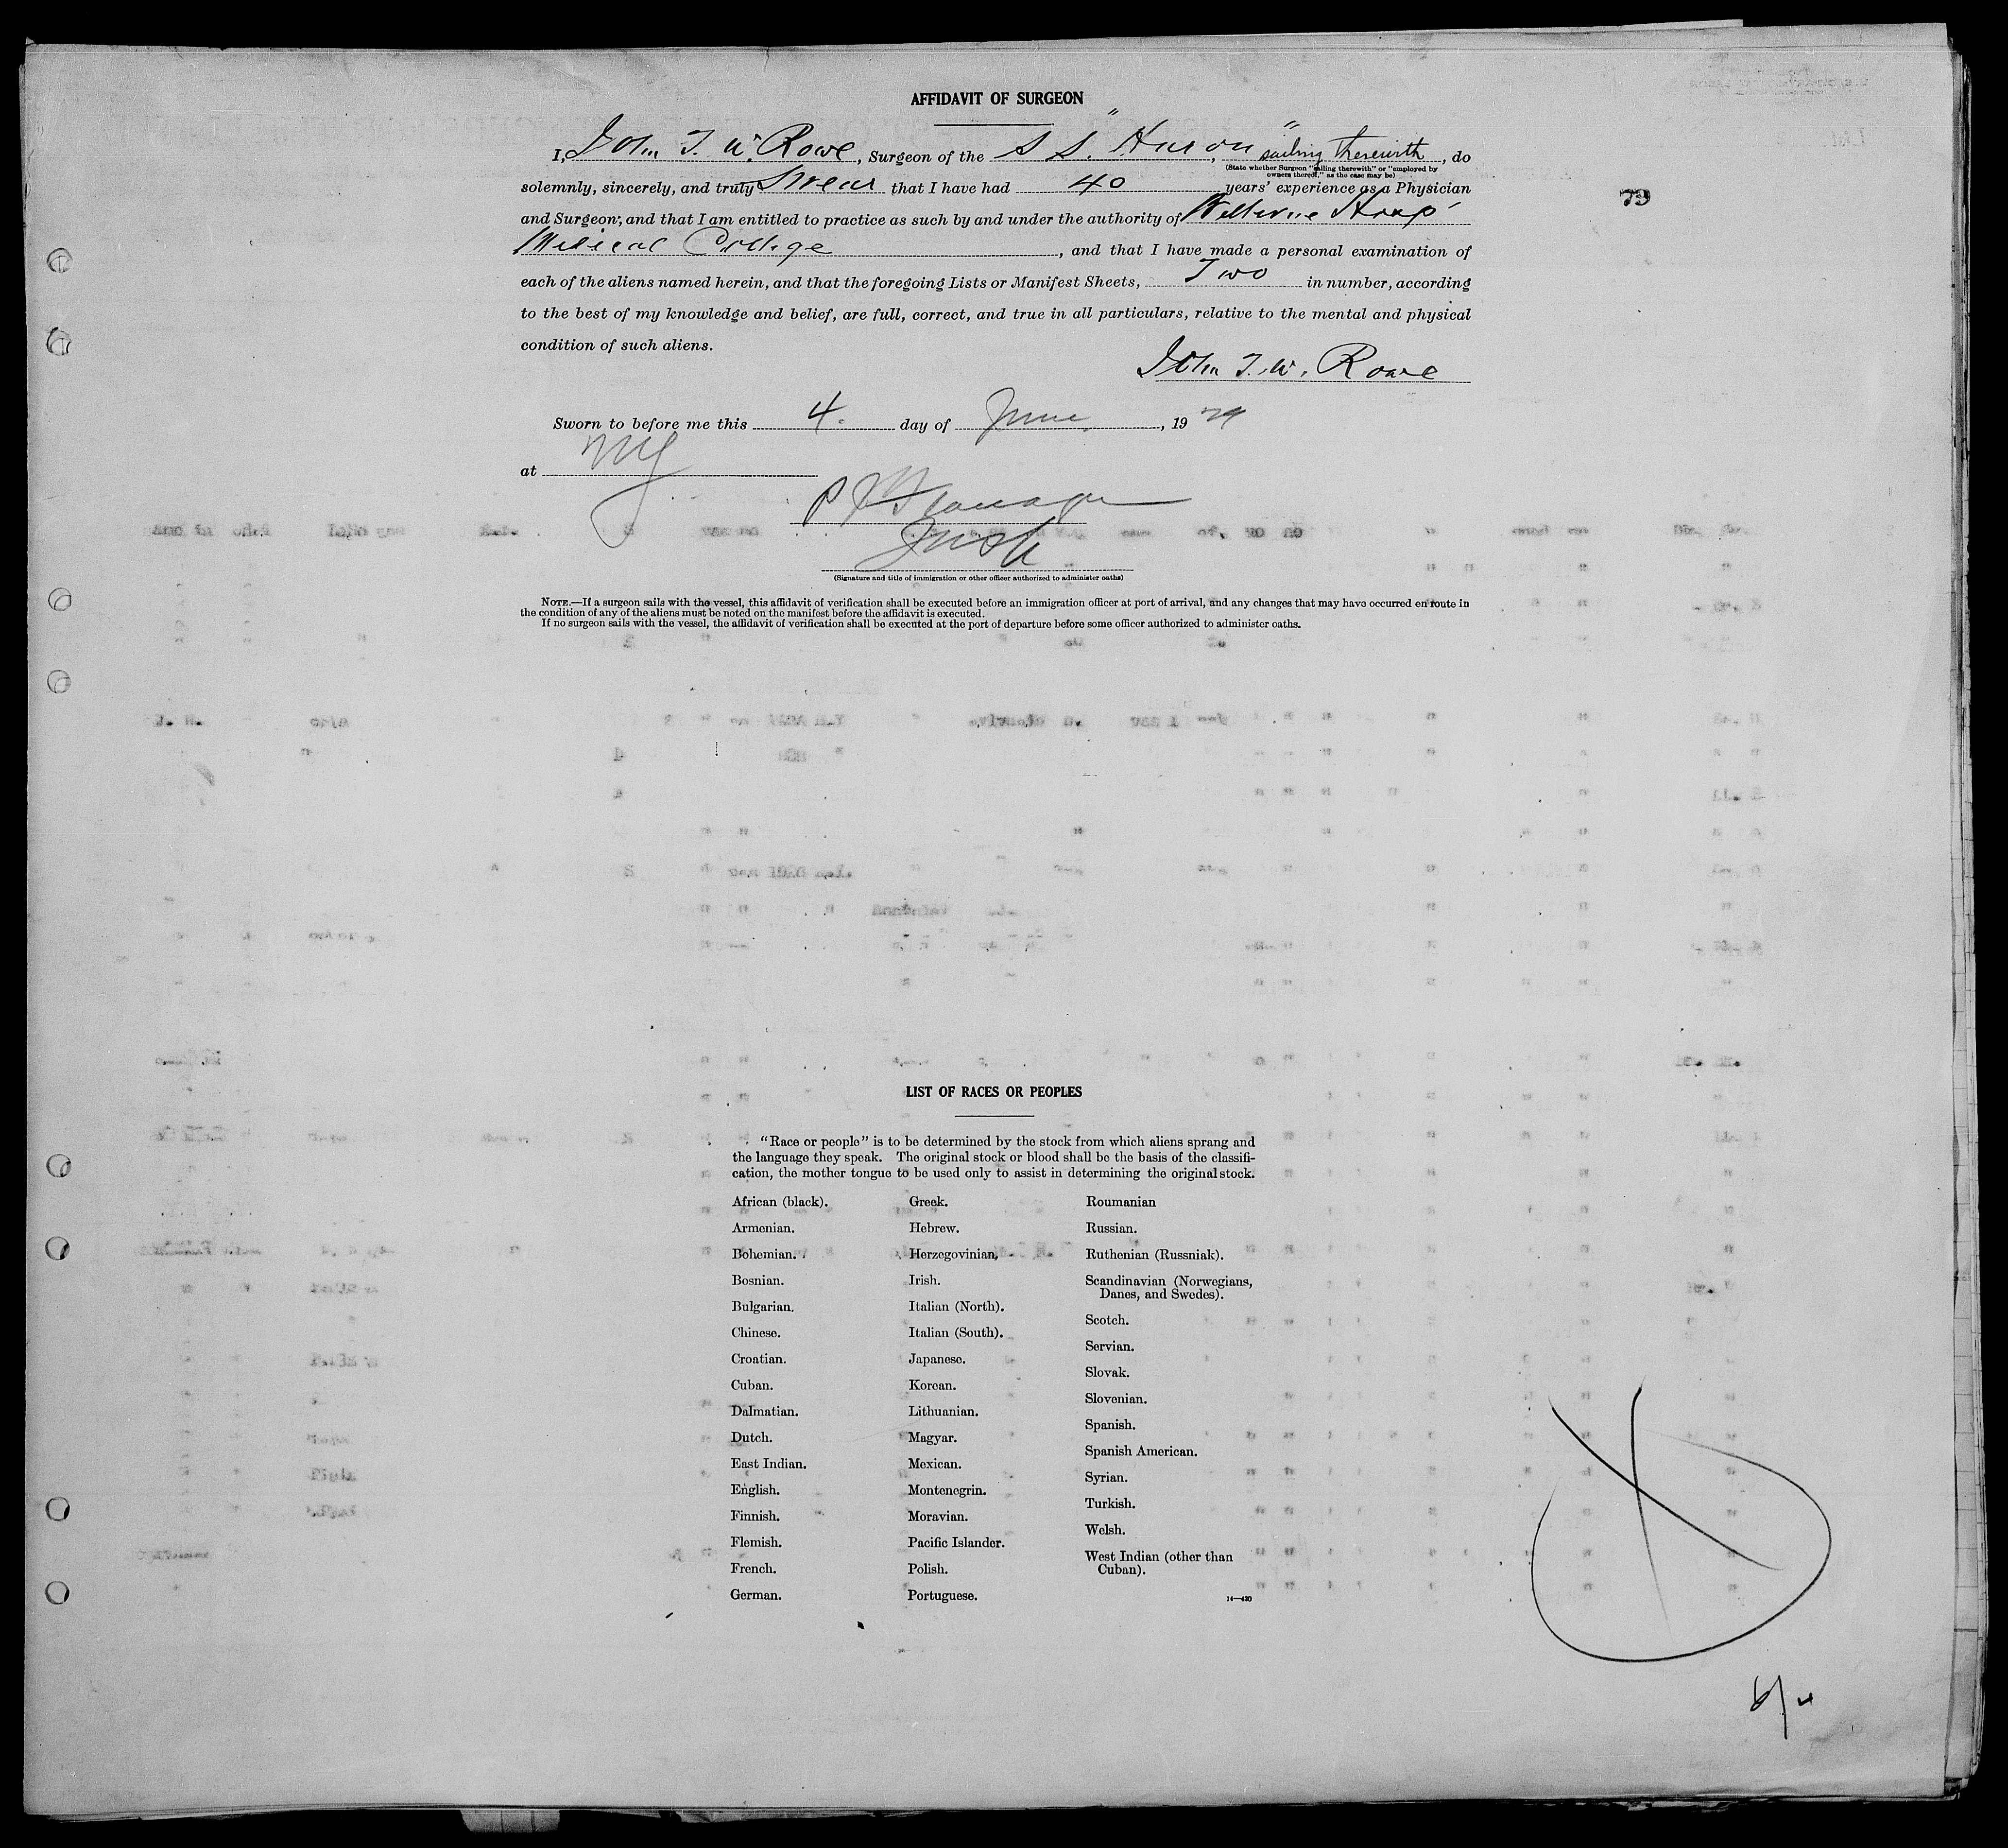 AFFIDAVIT OF SURGEON
I, John T. W. Rowe, Surgeon of the S S. "Huron", sailing therewith, do
(State whether Surgeon "sailing therewith" or "employed by
owners thereof," as the case may be)
solemnly, sincerely, and truly Swear that I have had 40 years' experience as a Physician
73
and Surgeon, and that I am entitled to practice as such by and under the authority of Bellevue Hosp
Medical College, and that I have made a personal examination of
each of the aliens named herein, and that the foregoing Lists or Manifest Sheets, Two in number, according
to the best of my knowledge and belief, are full, correct, and true in all particulars, relative to the mental and physical
condition of such aliens.
John T. W. Rowe
Sworn to before me this 4. day of June, 19 24
at NY
(Signature and title of immigration or other officer authorized to administer oaths)
NOTE.—If a surgeon sails with the vessel, this affidavit of verification shall be executed before an immigration officer at port of arrival, and any changes that may have occurred en route in
the condition of any of the aliens must be noted on the manifest before the affidavit is executed.
If no surgeon sails with the vessel, the affidavit of verification shall be executed at the port of departure before some officer authorized to administer oaths.
LIST OF RACES OR PEOPLES
"Race or people" is to be determined by the stock from which aliens sprang and
the language they speak. The original stock or blood shall be the basis of the classifi-
cation, the mother tongue to be used only to assist in determining the original stock.
African (black).
Armenian.
Bohemian.
Bosnian.
Bulgarian.
Chinese.
Croatian.
Cuban.
Dalmatian.
Dutch.
East Indian.
English.
Finnish.
Flemish.
French.
German.
Greek.
Hebrew.
Herzegovinian.
Irish.
Italian (North).
Italian (South).
Japanese.
Korean.
Lithuanian.
Magyar.
Mexican.
Montenegrin.
Moravian.
Pacific Islander.
Polish.
Portuguese.
Roumanian
Russian.
Ruthenian (Russniak).
Scandinavian (Norwegians,
Danes, and Swedes).
Scotch.
Servian.
Slovak.
Slovenian.
Spanish.
Spanish American.
Syrian.
Turkish.
Welsh.
West Indian (other than
Cuban).
14—430
6/4